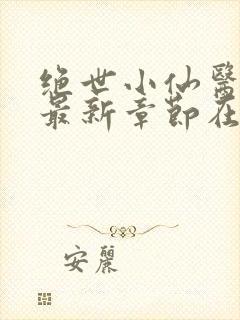 绝世小仙醫
最新章節在
安麗